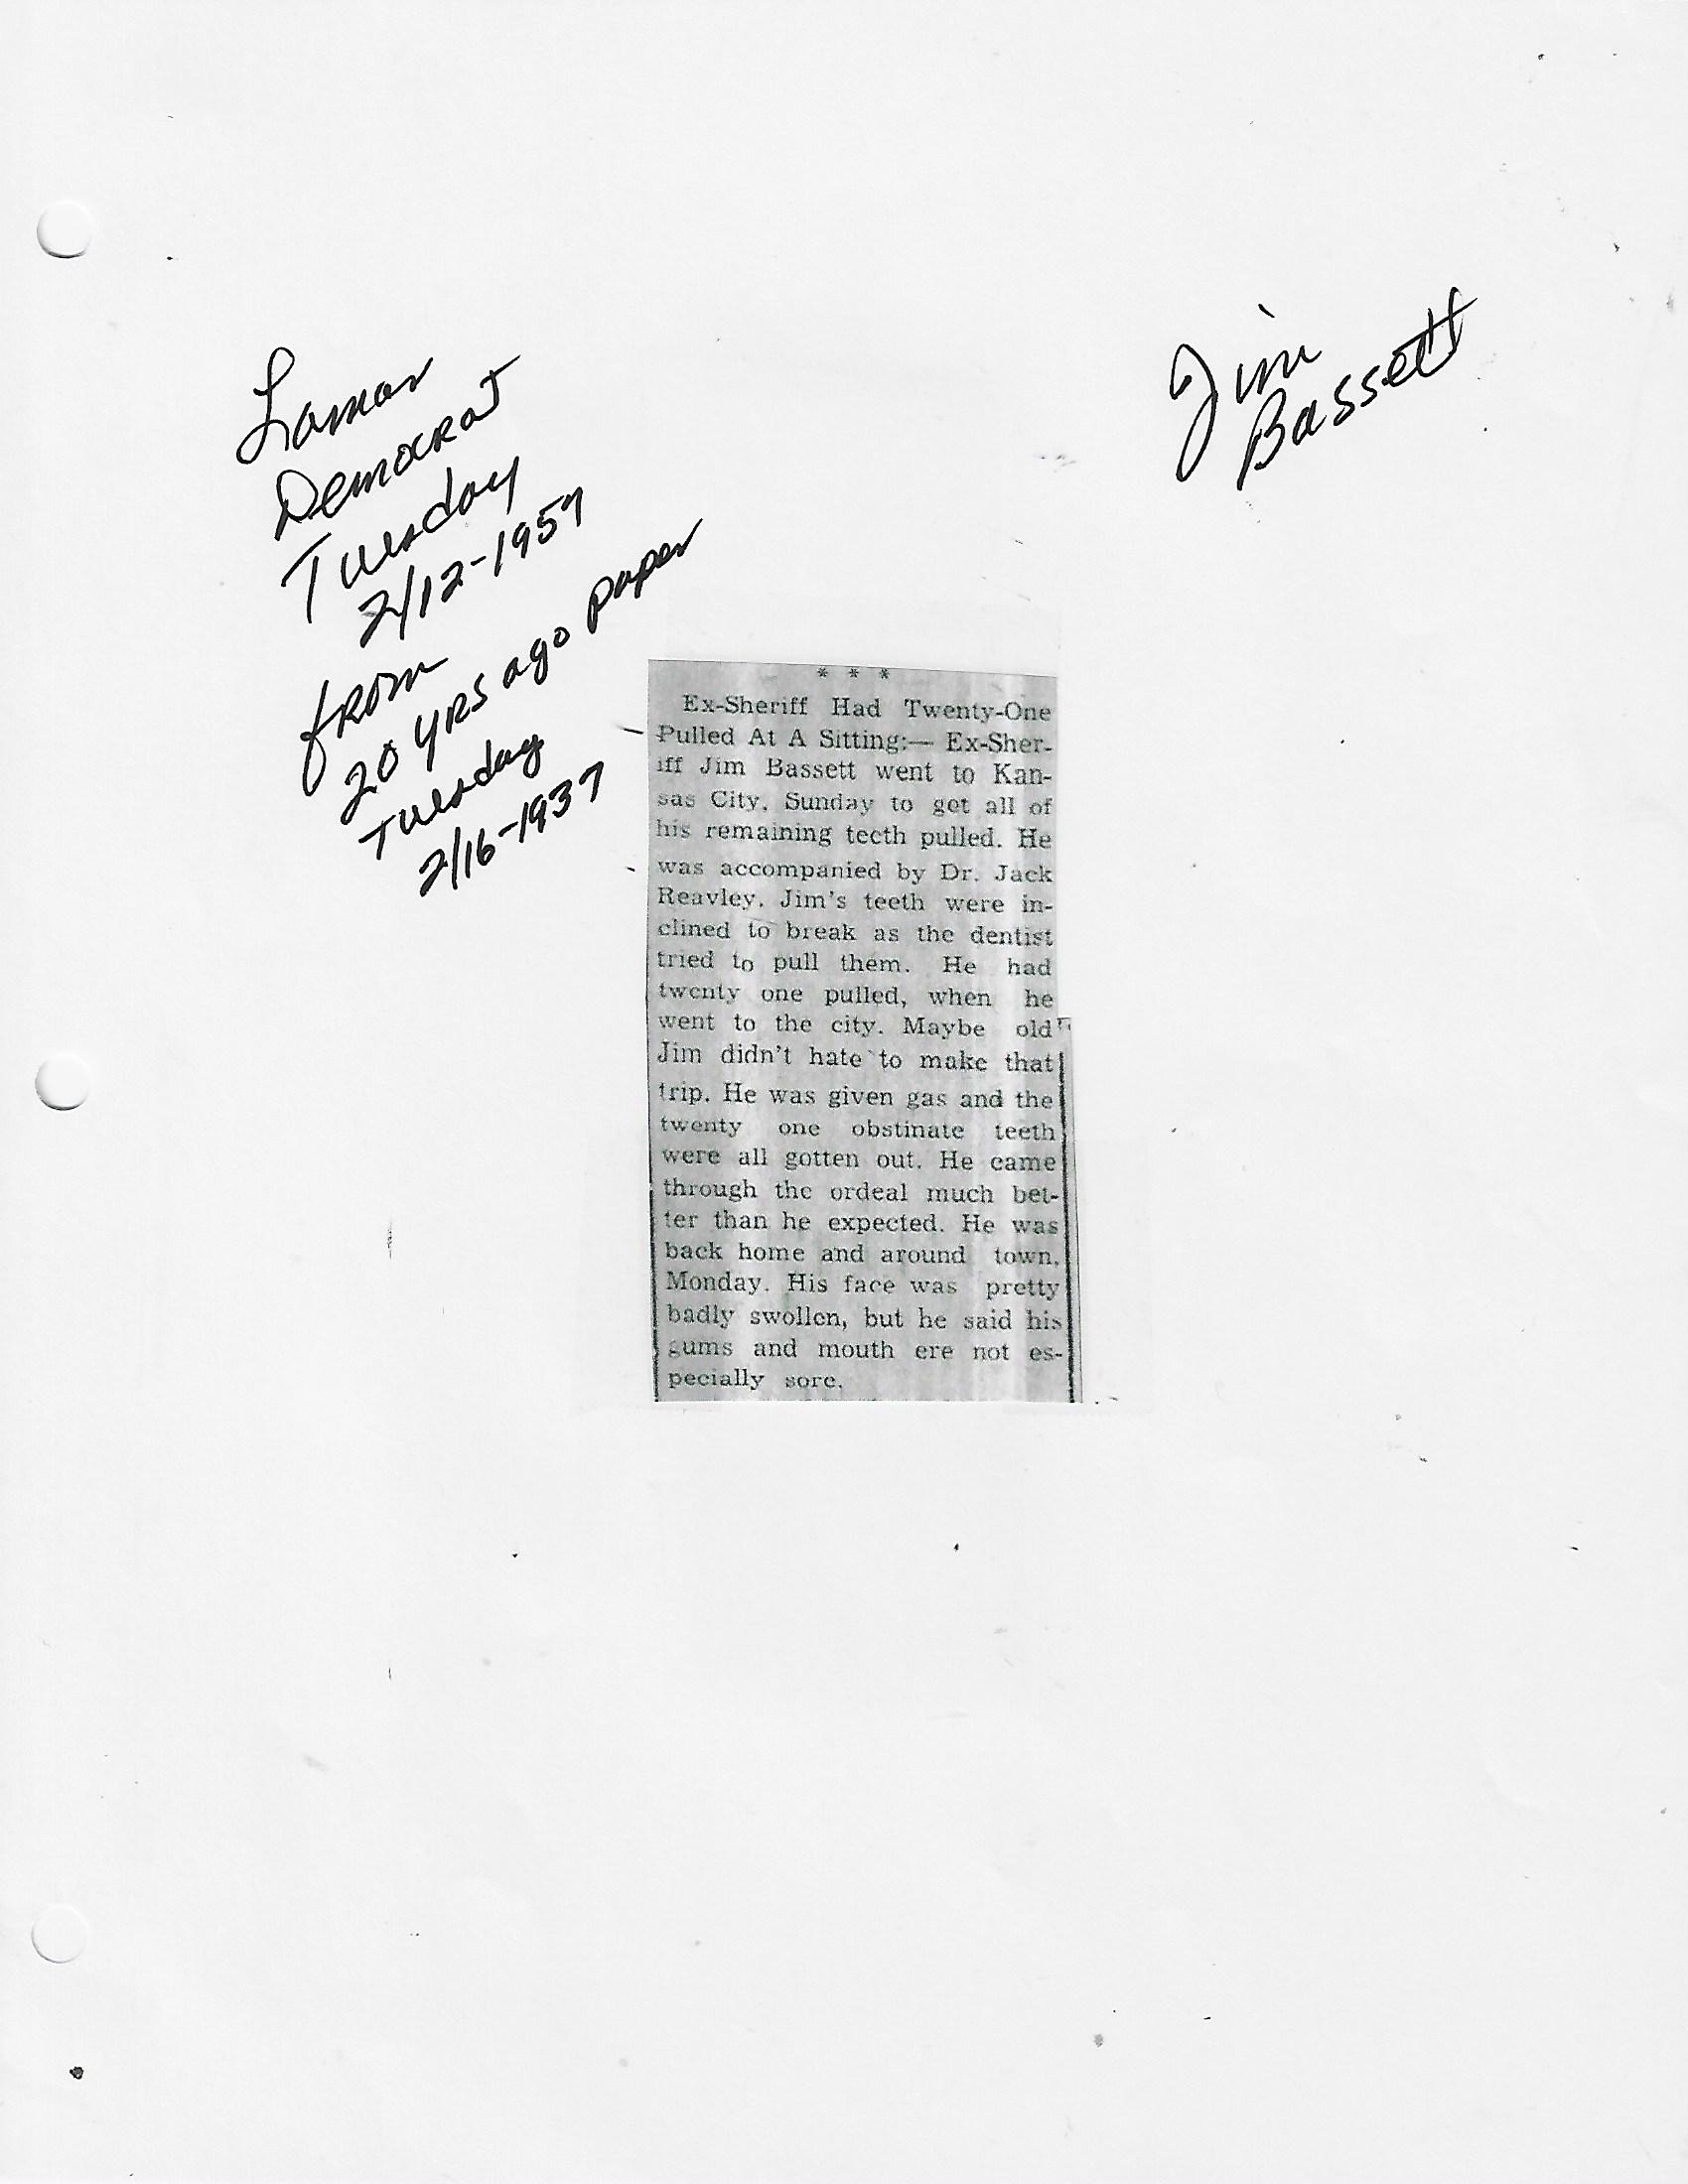 Lamar
Democrat
Tuesday
2/12-1957
from
20 yrs ago paper
Tuesday
2/16-1937
Jim
Bassett
* * *
Ex-Sheriff Had Twenty-One
Pulled At A Sitting:— Ex-Sher-
iff Jim Bassett went to Kan-
sas City, Sunday to get all of
his remaining teeth pulled. He
was accompanied by Dr. Jack
Reavley. Jim's teeth were in-
clined to break as the dentist
tried to pull them. He had
twenty one pulled, when he
went to the city. Maybe old
Jim didn't hate to make that
trip. He was given gas and the
twenty one obstinate teeth
were all gotten out. He came
through the ordeal much bet-
ter than he expected. He was
back home and around town,
Monday. His face was pretty
badly swollen, but he said his
gums and mouth ere not es-
pecially sore.